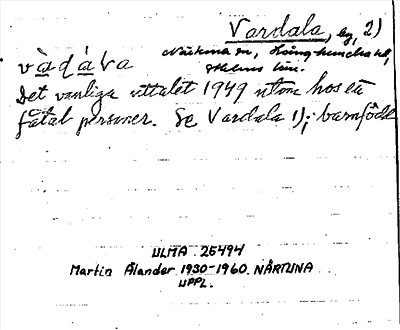 Vardala, by, 2)
vàḍàva
Närtuna sn, Långhundra hd,
Sthlms län.
Det vanliga uttalet 1949 utom hos ett
fåtal personer. Se Vardala 1); barnfödd
ULMA 25494
Martin Ålander 1930-1960. NÄRTUNA
UPPL.